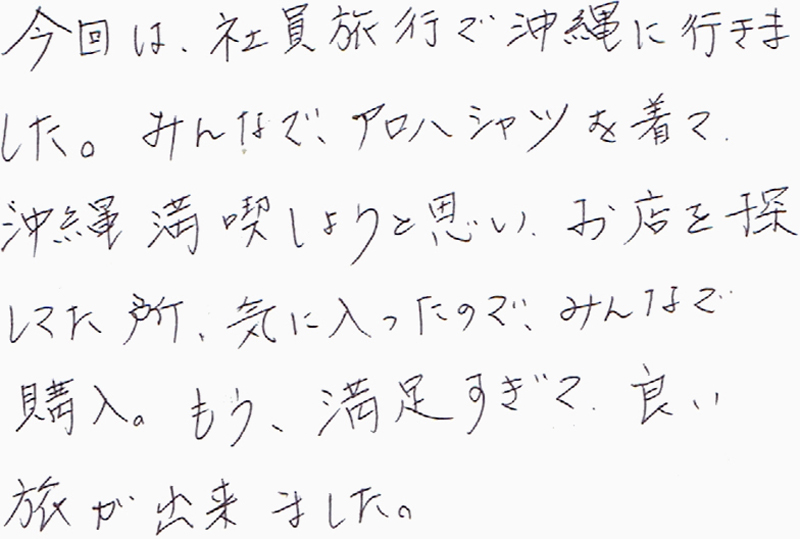 今回は、社員旅行で沖縄に行きま
した。みんなで、アロハシャツを着て、
沖縄満喫しようと思い、お店を探
してた所、気に入ったので、みんなで
購入。もう、満足すぎて、良い
旅が出来ました。